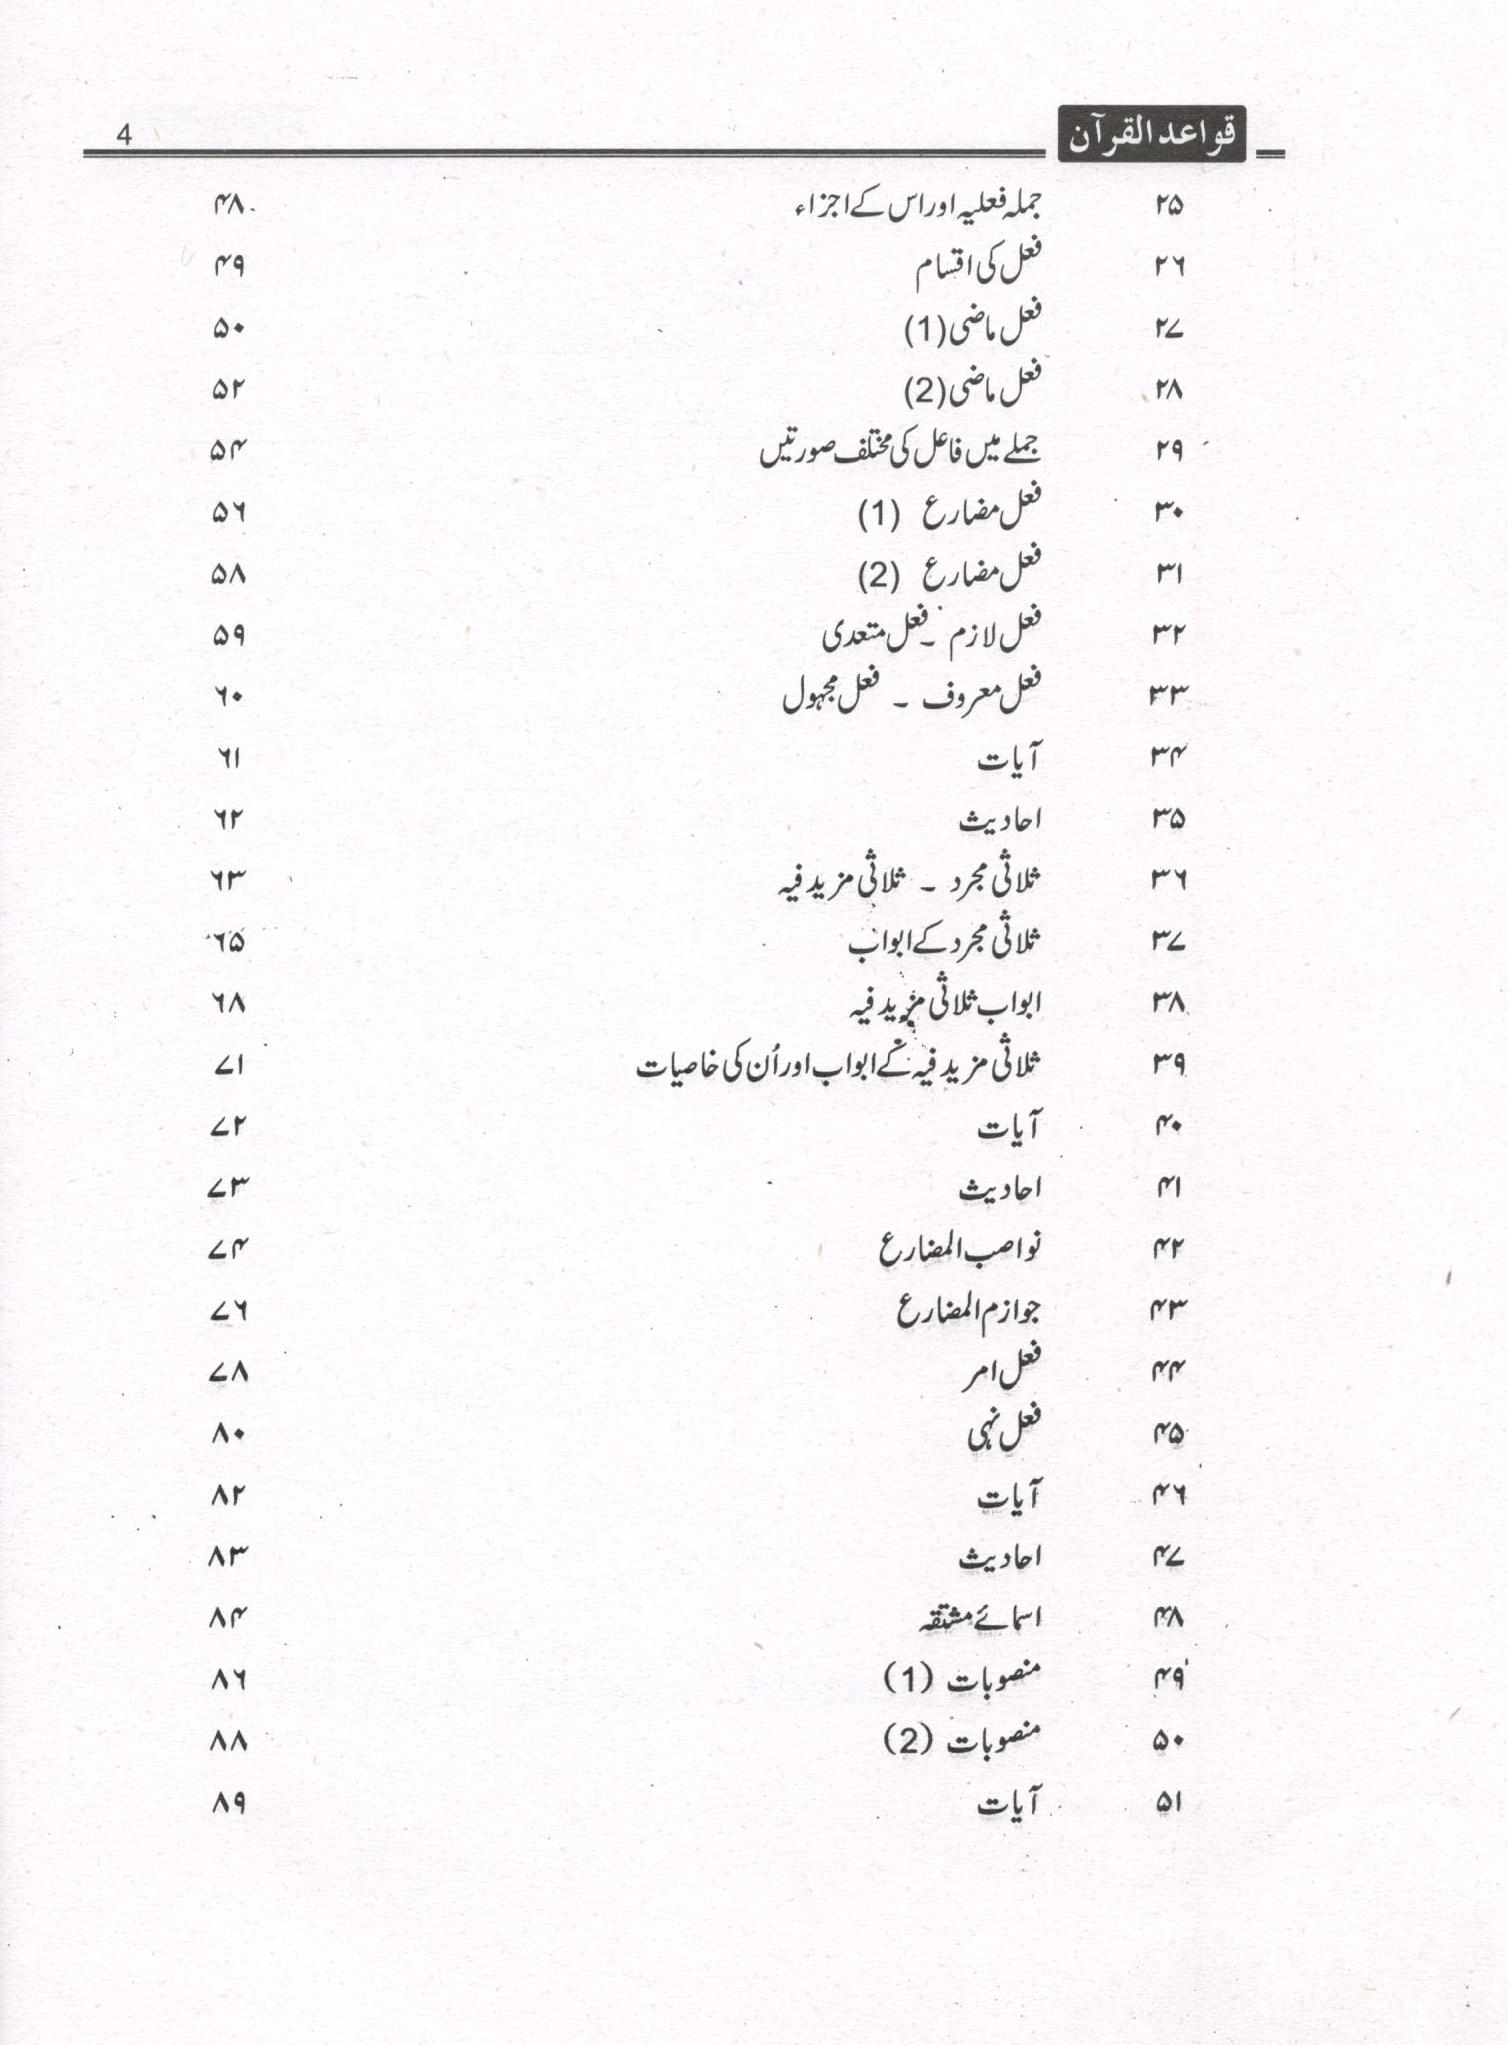 قواعد القرآن 4
۲۵ جملہ فعلیہ اور اس کے اجزاء ۴۸
۲۶ فعل کی اقسام ۴۹
۲۷ فعل ماضی (1) ۵۰
۲۸ فعل ماضی (2) ۵۲
۲۹ جملے میں فاعل کی مختلف صورتیں ۵۴
۳۰ فعل مضارع (1) ۵۶
۳۱ فعل مضارع (2) ۵۸
۳۲ فعل لازم ۔ فعل متعدی ۵۹
۳۳ فعل معروف ۔ فعل مجہول ۶۰
۳۴ آیات ۶۱
۳۵ احادیث ۶۲
۳۶ ثلاثی مجرد ۔ ثلاثی مزید فیہ ۶۳
۳۷ ثلاثی مجرد کے ابواب ۶۵
۳۸ ابواب ثلاثی مزید فیہ ۶۸
۳۹ ثلاثی مزید فیہ کے ابواب اور اُن کی خاصیات ۷۱
۴۰ آیات ۷۲
۴۱ احادیث ۷۳
۴۲ نواصب المضارع ۷۴
۴۳ جوازم المضارع ۷۶
۴۴ فعل امر ۷۸
۴۵ فعل نہی ۸۰
۴۶ آیات ۸۲
۴۷ احادیث ۸۳
۴۸ اسمائے مشتقہ ۸۴
۴۹ منصوبات (1) ۸۶
۵۰ منصوبات (2) ۸۸
۵۱ آیات ۸۹